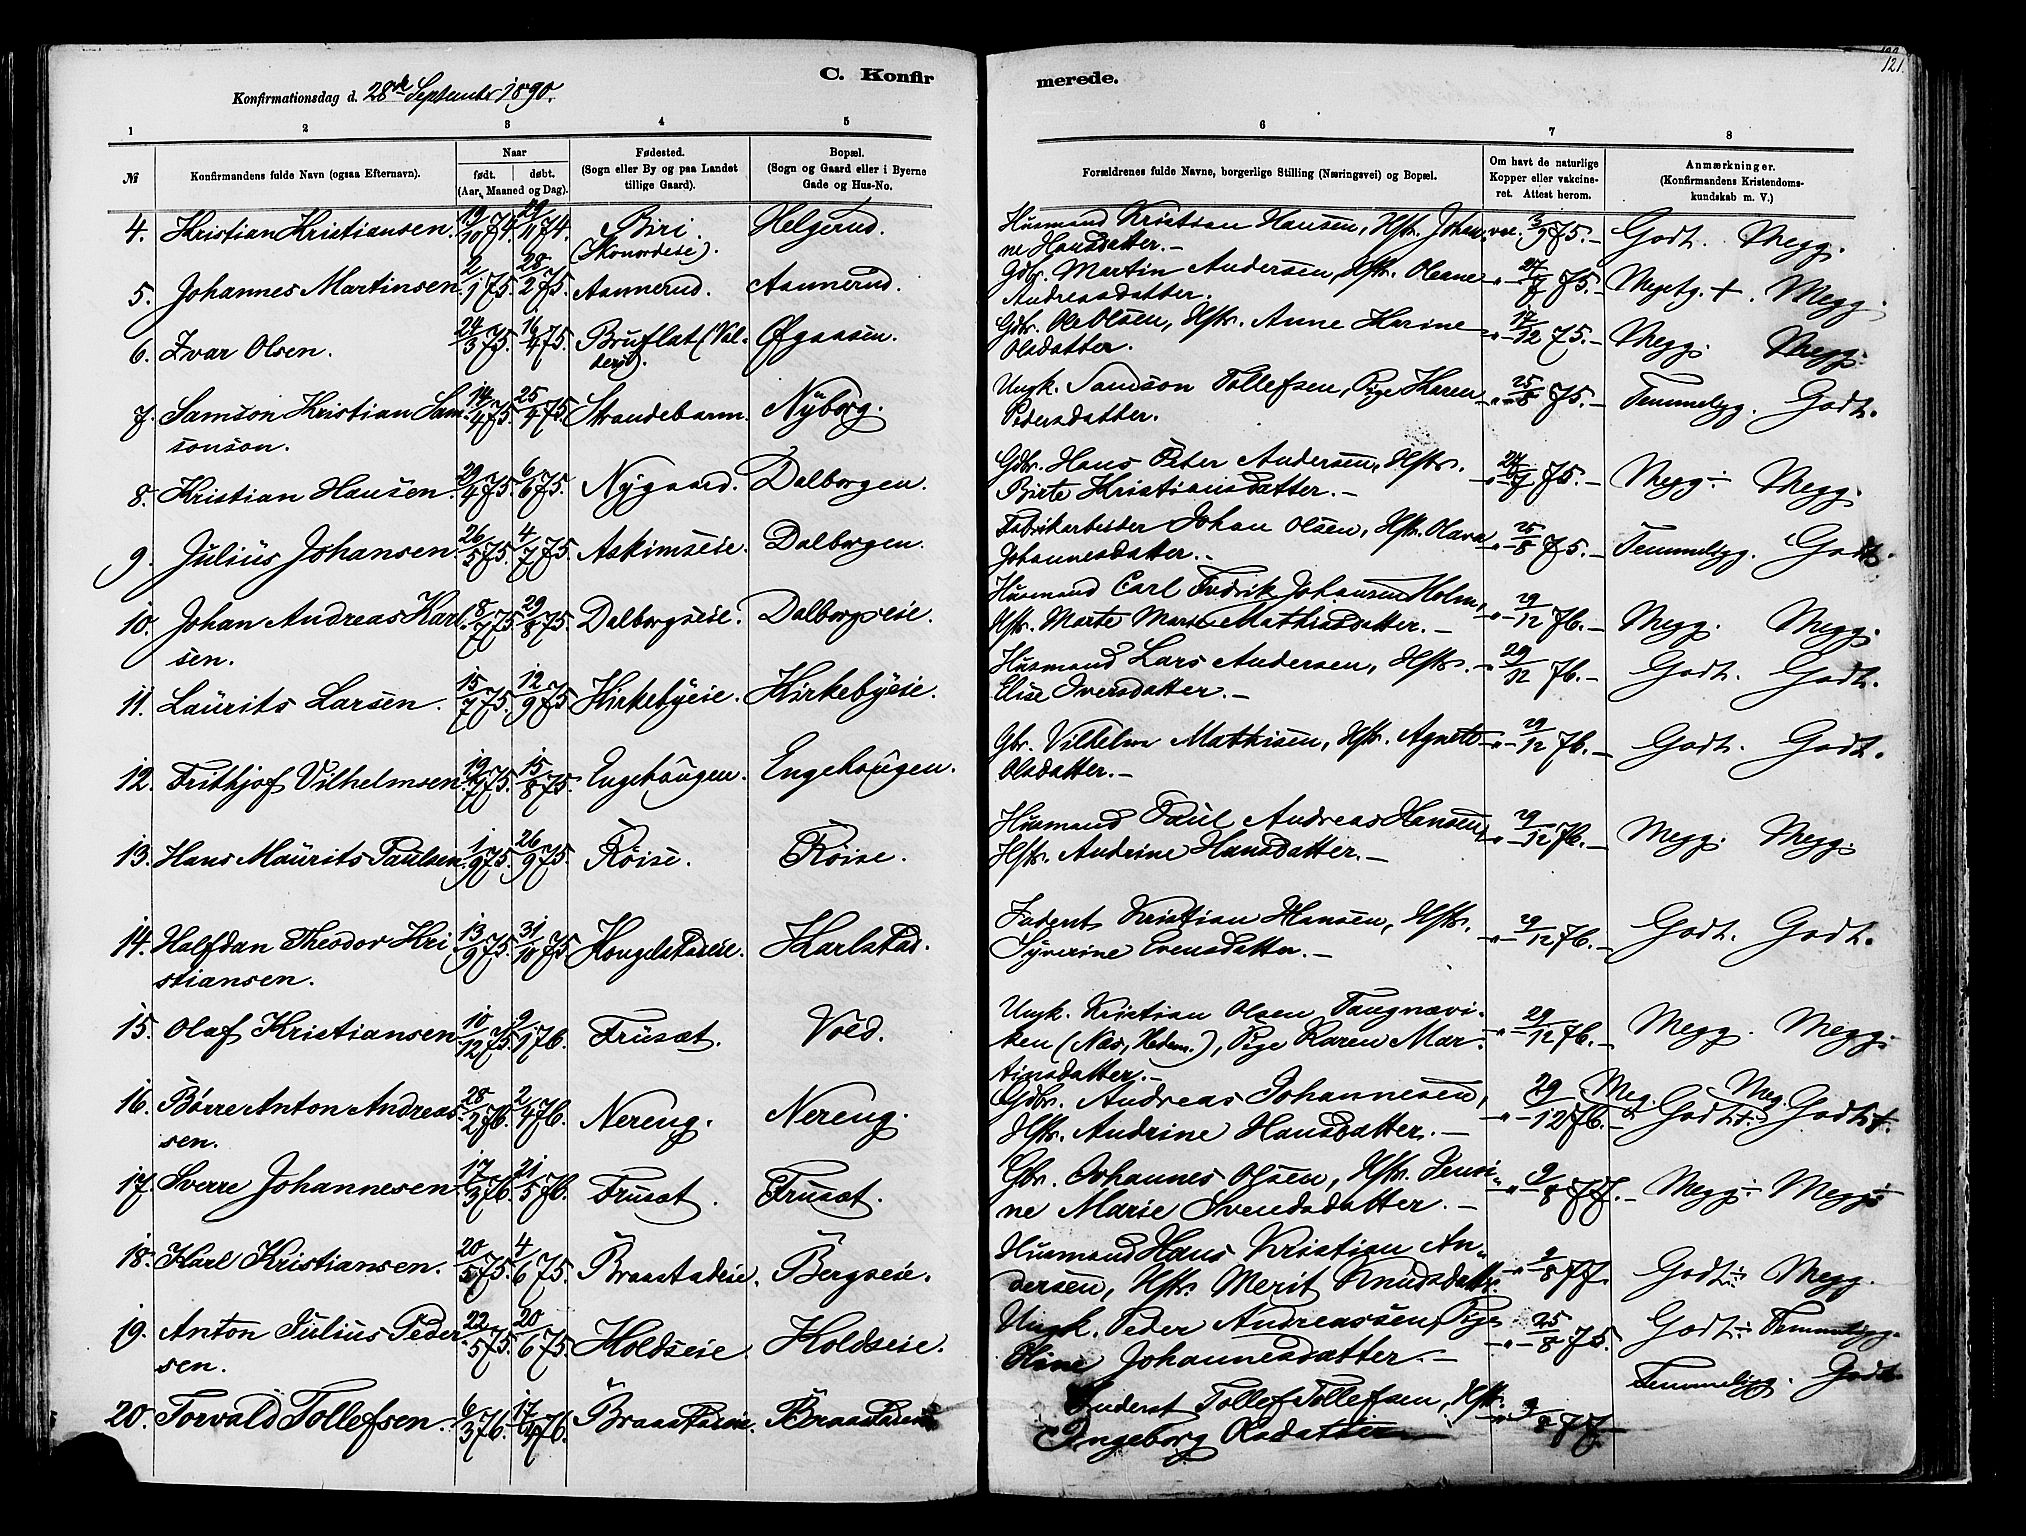 C. Konfir
merede.
121.
Konfirmationsdag d. 28de September 1890.
1 2 3 4 5 6 7 8
№
Konfirmandens fulde Navn (ogsaa Efternavn).
Naar
født. døbt.
(Aar, Maaned og Dag).
Fødested.
(Sogn eller By og paa Landet
tillige Gaard).
Bopæl.
(Sogn og Gaard eller i Byerne
Gade og Hus-No.
Forældrenes fulde Navne, borgerlige Stilling (Næringsvei) og Bopæl.
Om havt de naturlige
Kopper eller vakcine-
ret. Attest herom.
Anmærkninger.
(Konfirmandens Kristendoms-
kundskab m. V.)
4. Kristian Kristiansen. 19/10 74. 29/11 74. Biri. Helgerud. Husmand Kristian Hansen, Hstr. Johan- vac. 3/9 75.- Godt. Megg.
(Skonordeie). ne Hansdatter.-
5. Johannes Martinsen 2/1 75. 28/2 75. Aannerud. Aannerud. Gdbr. Martin Andersen, Hstr. Oleane -"- 27/7 75.- Megetg. +. Megg.
Andreasdatter.
6. Ivar Olsen. 24/3 75. 16/4 75. Bruflat (Val- Øfgaasen. Gdbr. Ole Olsen, Hstr. Anne Karine -"- 17/12 75.- Megg. Megg.
ders). Olsdatter.
7. Samson Kristian Sam- 14/4 75. 25/4 75. Strandebarm. Nyborg. Ungk. Samson Tollefsen, Pige Karen -"- 25/8 75.- Temmeligg. Godt.
sonson. Pedersdatter.
8. Kristian Hansen 29/4 75. 6/6 75. Nygaard. Dalborgen. Gdbr. Hans Peter Andersen, Hstr. -"- 27/7 75.- Megg ÷ Megg.
Birte Kristiansdatter.-
9. Julius Johansen 26/5 75. 4/7 75. Askimseie. Dalborgen. Fabrikarbeider Johan Olsen, Hstr. Olava -"- 25/8 75.- Temmeligg. Godt.
Johannesdatter.-
10. Johan Andreas Karl- 8/7 75. 29/8 75. Dalborgseie. Dalborgseie. Husmand Carl Fredrik Johansen Holm, -"- 29/12 76.- Megg. Megg.
sen. Hstr. Marte Marie Mathisdatter.-
11. Laurits Larsen. 15/7 75. 12/9 75 Kirkebyeie. Kirkebyeie. Husmand Lars Andersen, Hstr. -"- 29/12 76.- Godt. Godt.
Elise Iversdatter.-
12. Frithjof Vilhelmsen 19/7 75. 15/8 75. Engehaugen. Engehaugen. Gbr. Vilhelm Mathisen, Hstr. Agnete -"- 29/12 76.- Godt. Godt.
Olsdatter.-
13. Hans Maurits Paulsen 1/9 75. 26/9 75. Røise. Røise. Husmand Paul Andreas Hansen, -"- 29/12 76.- Megg. Megg.
Hstr. Andrine Hansdatter.-
14. Halfdan Theodor Kri- 13/9 75. 31/10 75 Kongelstadeie. Karlstad. Inderst Kristian Hansen, Hstr. -"- 29/12 76.- Godt. Godt.
stiansen. Syverine Evensdatter.-
15. Olaf Kristiansen 10/12 75. 9/1 76. Frusæt. Vold. Ungk. Kristian Olsen Taugnævi- -"- 29/12 76.- Megg. Megg.
ken (Næs, Hedem.), Pige Karen Mar-
tinsdatter.-
16. Børre Anton Andreas- 28/2 76. 2/4 76. Nereng. Nereng. Gdbr. Andreas Johannesen, -"- 29/12 76.- Meg. Godt Meg. Godt
sen. Hstr. Andrine Hansdatter.-
17. Sverre Johannesen 17/3 76. 21/5 76. Frusæt. Frusæt. Gbr. Johannes Olsen, Hstr. Jensi- -"- 9/8 77.- Megg ÷ Megg ÷
ne Marie Svendsdatter.-
18. Karl Kristiansen. 20/5 75. 4/6 75. Braastadeie. Bergseie. Husmand Hans Kristian An- -"- 9/8 77. Godt ÷ Megg.
dersen, Hstr. Merit Knudsdatter.
19. Anton Julius Peder- 22/5 75. 20/6 75. Holdseie. Holdseie. Ungk. Peder Andreassen, Pige -"- 25/8 75. Godt ÷ Temmeligg.
sen. Oline Johannesdatter.-
20. Torvald Tollefsen. 6/3 76. 17/4 76. Braastadeie. Braastadeie Inderst Tollef Tollefsen, Hstr. -"- 9/8 77. Temmeligg. Godt.
Ingeborg Olsdatter